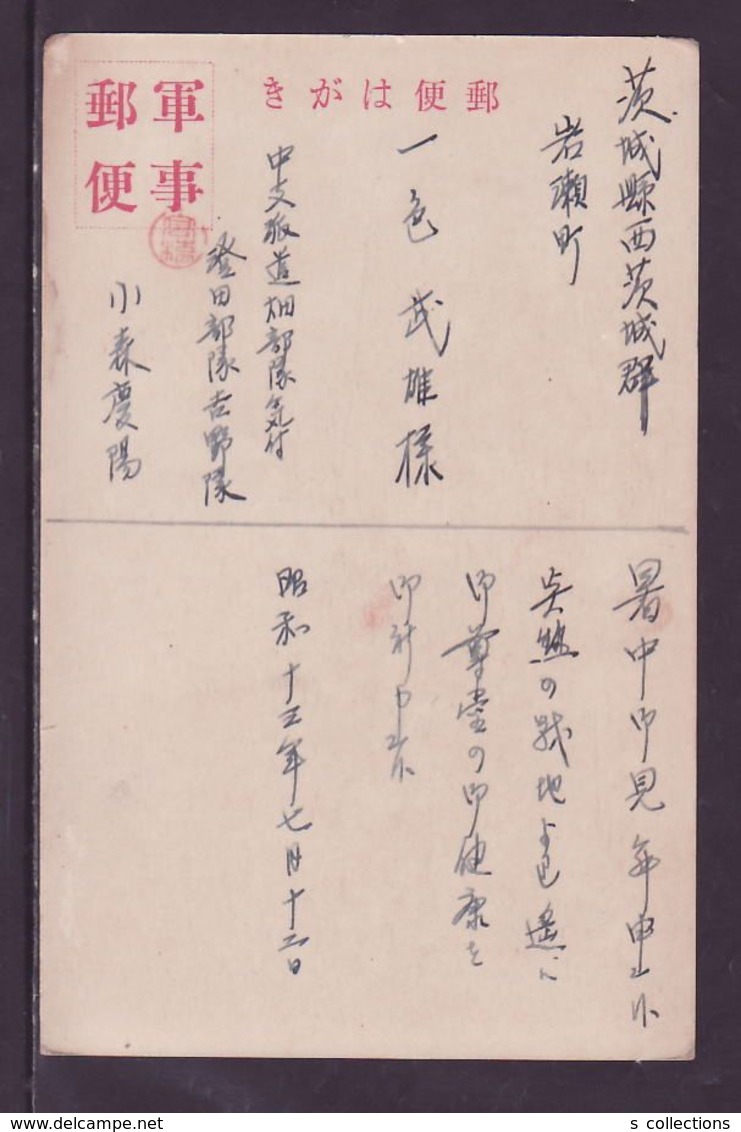 郵便はがき
軍事
郵便
茨城縣西茨城群
岩瀬町
一色武雄様
中支派遣畑部隊気付
澄田部隊吉野隊
小森慶陽
暑中御見舞申上候
炎熱の戦地より遙に
御尊堂の御健康を
御祈申上候
昭和十三年七月十二日
s collections
delcampe.net